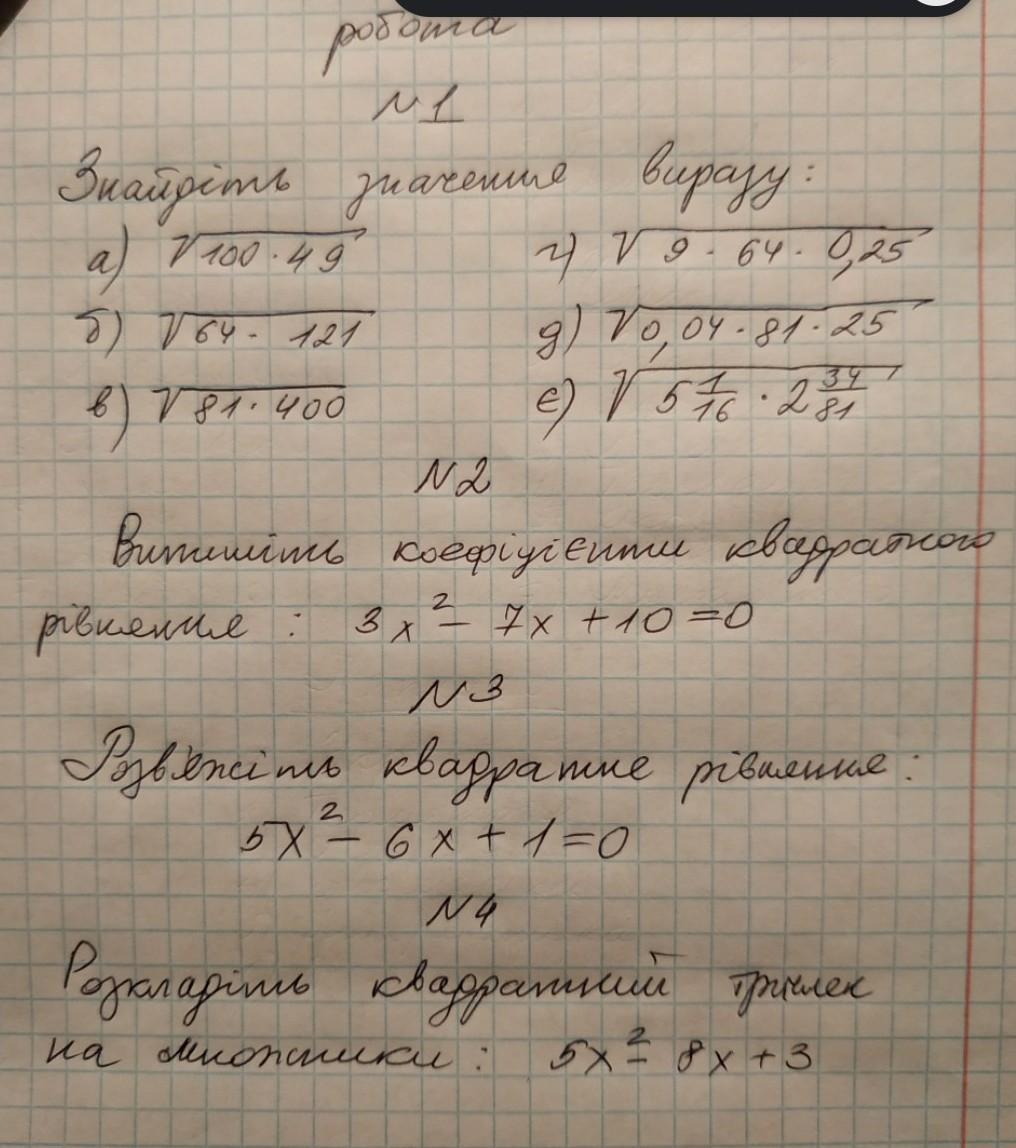 робота
№1
Знайдіть значення виразу:
а) √100·49 г) √9·64·0,25
б) √64·121 д) √0,04·81·25
в) √81·400 є) √5 1/16 · 2 34/81
№2
Випишіть коефіцієнти квадратного
рівняння : 3x² - 7x + 10 = 0
№3
Розв'яжіть квадратне рівняння:
5x² - 6x + 1 = 0
№4
Розкладіть квадратний тричлен
на множники: 5x² - 8x + 3